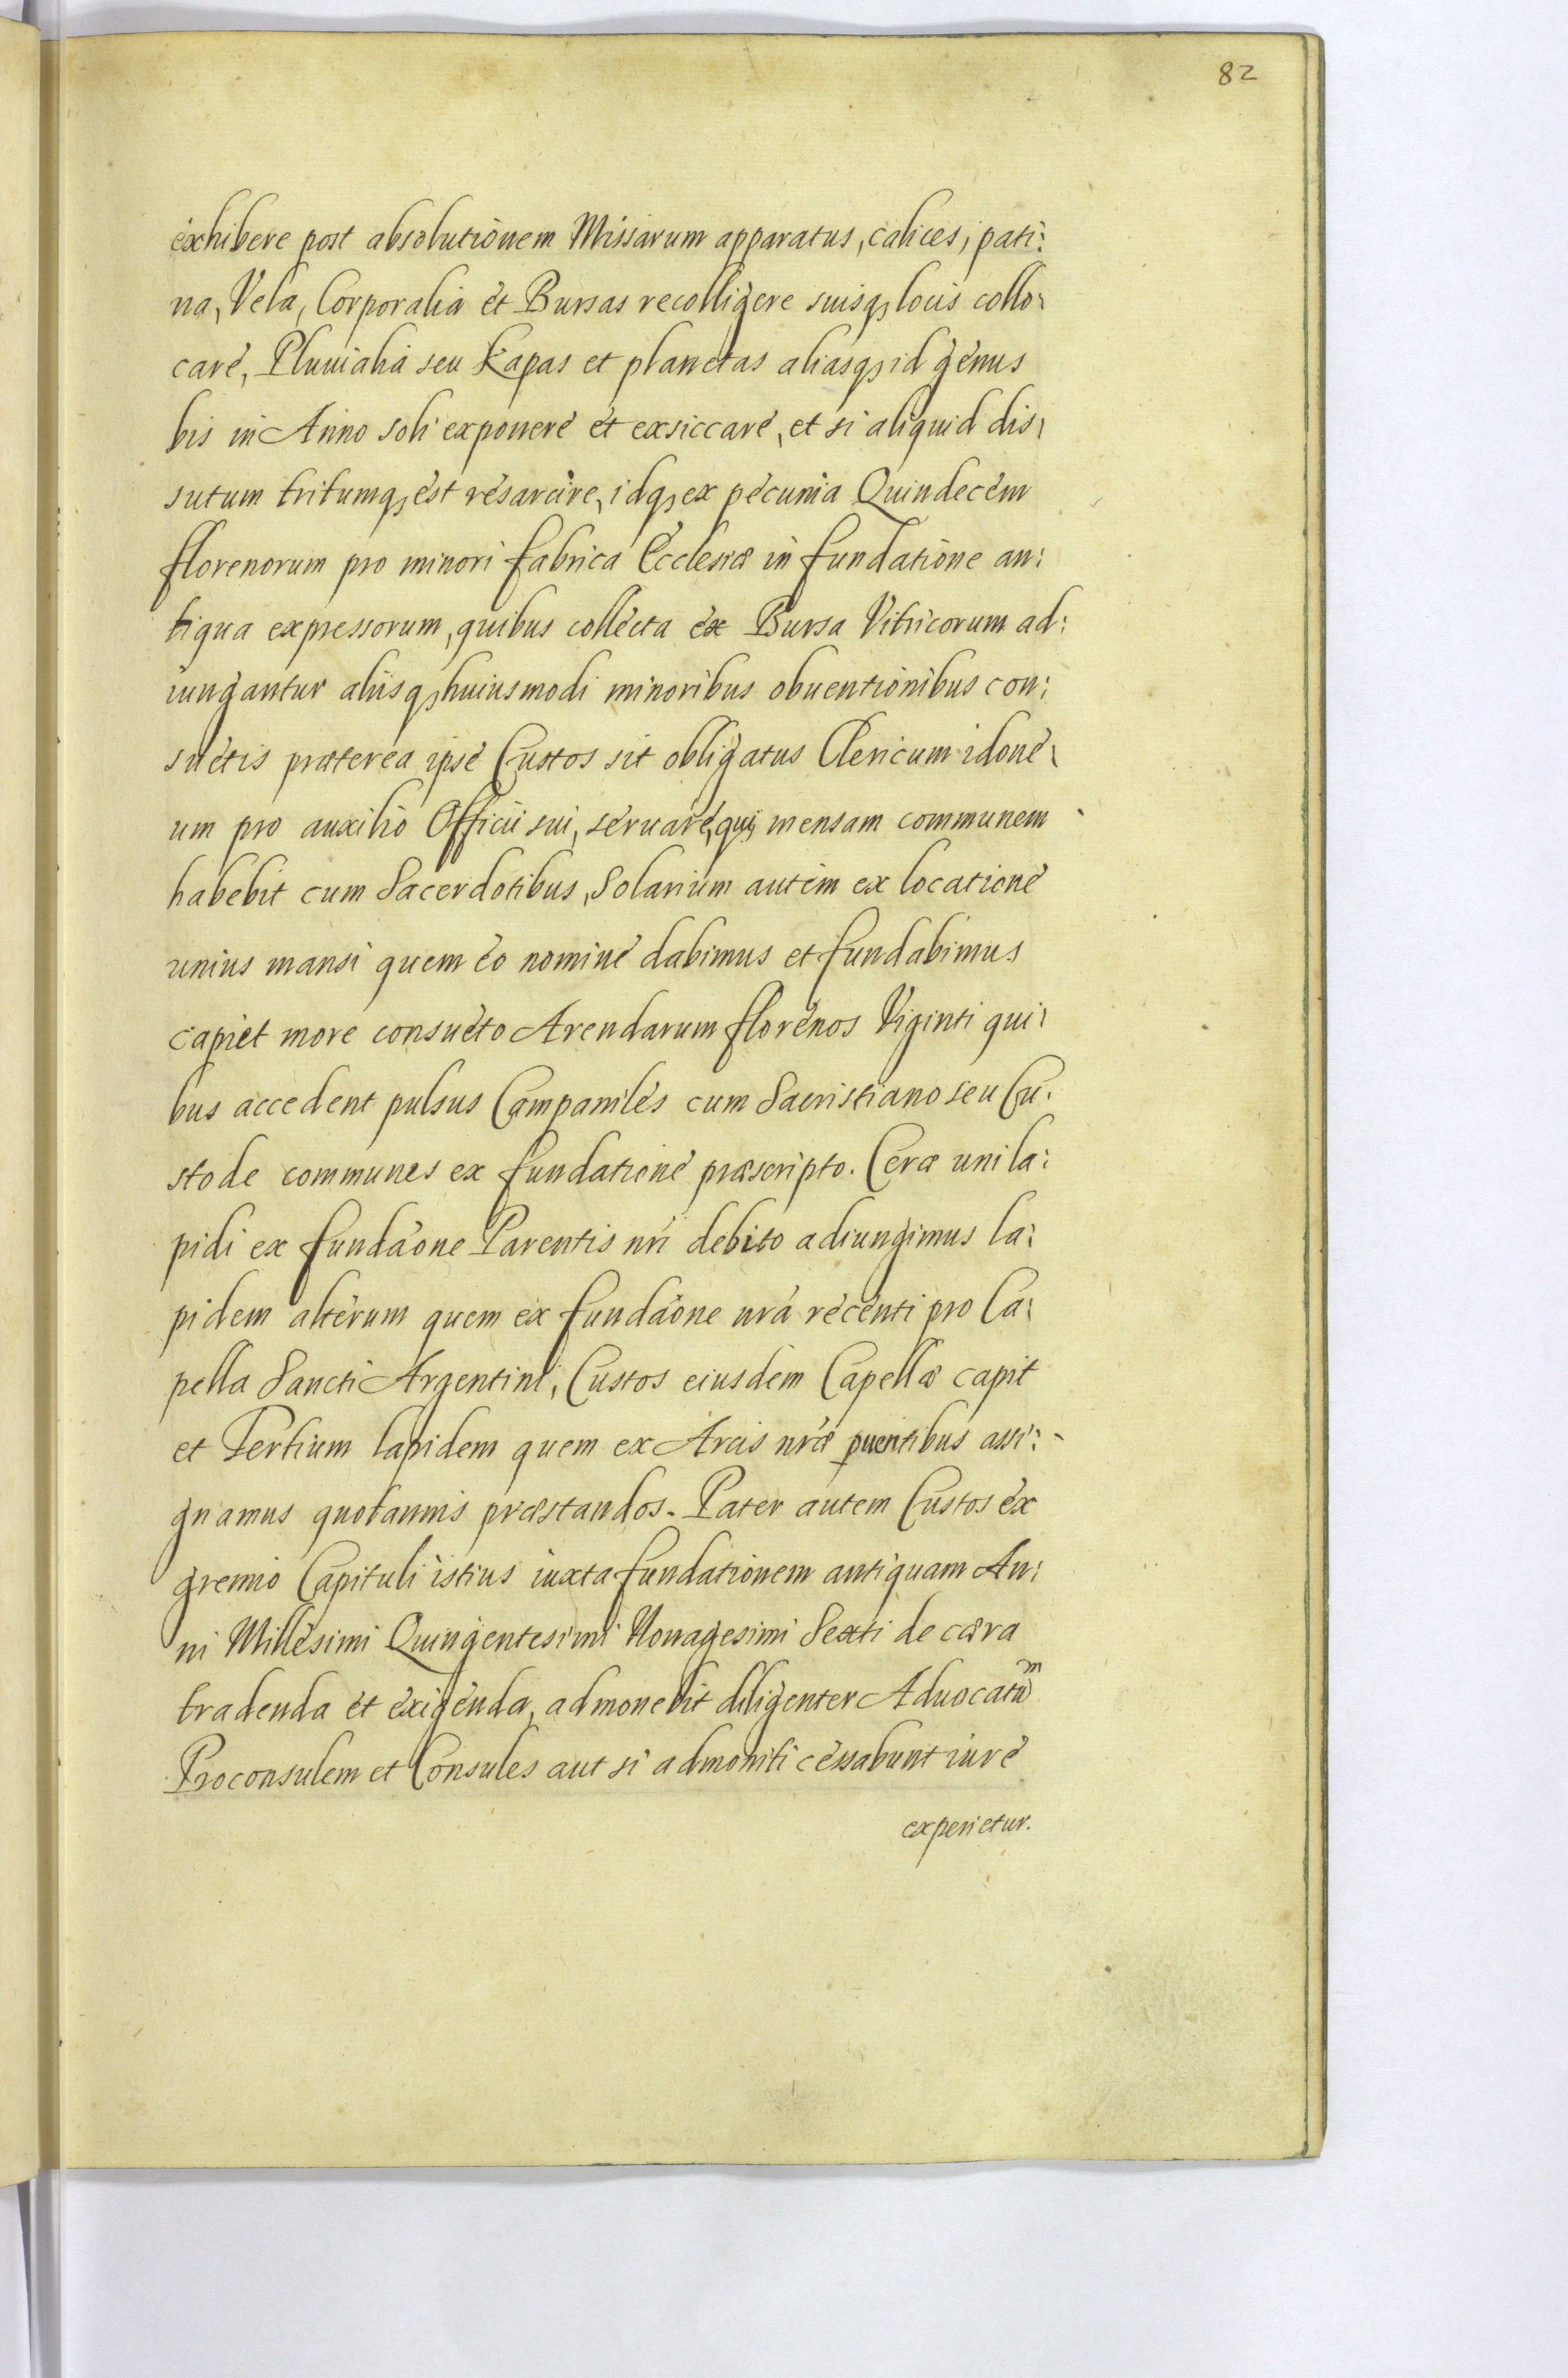 82
exhibere post absolutionem Missarum apparatus, calices, pati:
na, Vela, Corporalia et Bursas recolligere suisq, locis collo:
care, Pluuialia seu Kapas et planetas aliasq, id genus
bis in Anno soli exponere et exsiccare, et si aliquid dis:
sutum tritumq, est resarcire, idq, ex pecunia Quindecem
florenorum pro minori fabrica Ecclesiæ in fundatione an:
tiqua expressorum, quibus collecta ex Bursa Vitricorum ad:
iungantur alijsq, huiusmodi minoribus obuentionibus con:
suetis præterea ipse Custos sit obligatus Clericum idone:
um pro auxilio Officii sui, seruare, qui mensam communem
habebit cum Sacerdotibus, Solarium autem ex locatione
unius mansi quem eo nomine dabimus et fundabimus
capiet more consueto Arendarum florenos Viginti qui:
bus accedent pulsus Campaniles cum Sacristiano seu Cu:
stode communes ex fundatione præscripto. Ceræ uni la:
pidi ex fundãone Parentis nr̃i debito adiungimus la:
pidem alterum quem ex fundãone nr̃a recenti pro Ca:
pella Sancti Argentini, Custos eiusdem Capellæ capit
et Tertium lapidem quem ex Arcis nr̃æ puentibus assi:
gnamus quotannis præstandos. Pater autem Custos ex
gremio Capituli istius iuxta fundationem antiquam An:
ni Millesimi Quingentesimi Nonagesimi Sexti de cæra
tradenda et exigenda, admonebit diligenter Aduocatũm
Proconsulem et Consules aut si admoniti cessabunt iure
experietur.